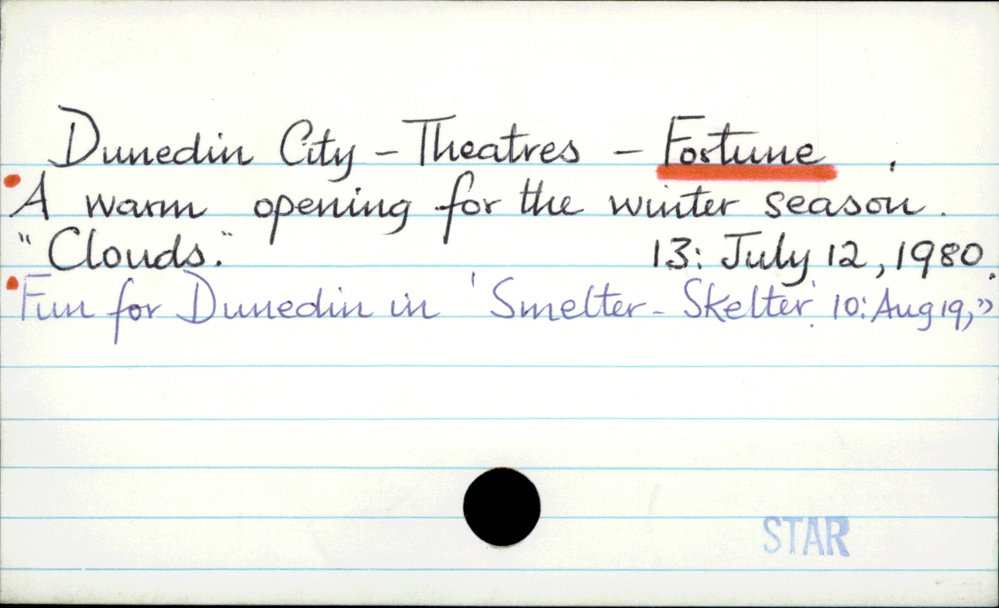 Dunedin City - Theatres - Fortune.
A warm opening for the winter season.
"Clouds." 13: July 12, 1980.
Fun for Dunedin in 'Smelter-Skelter'. 10: Aug 19, "
STAR